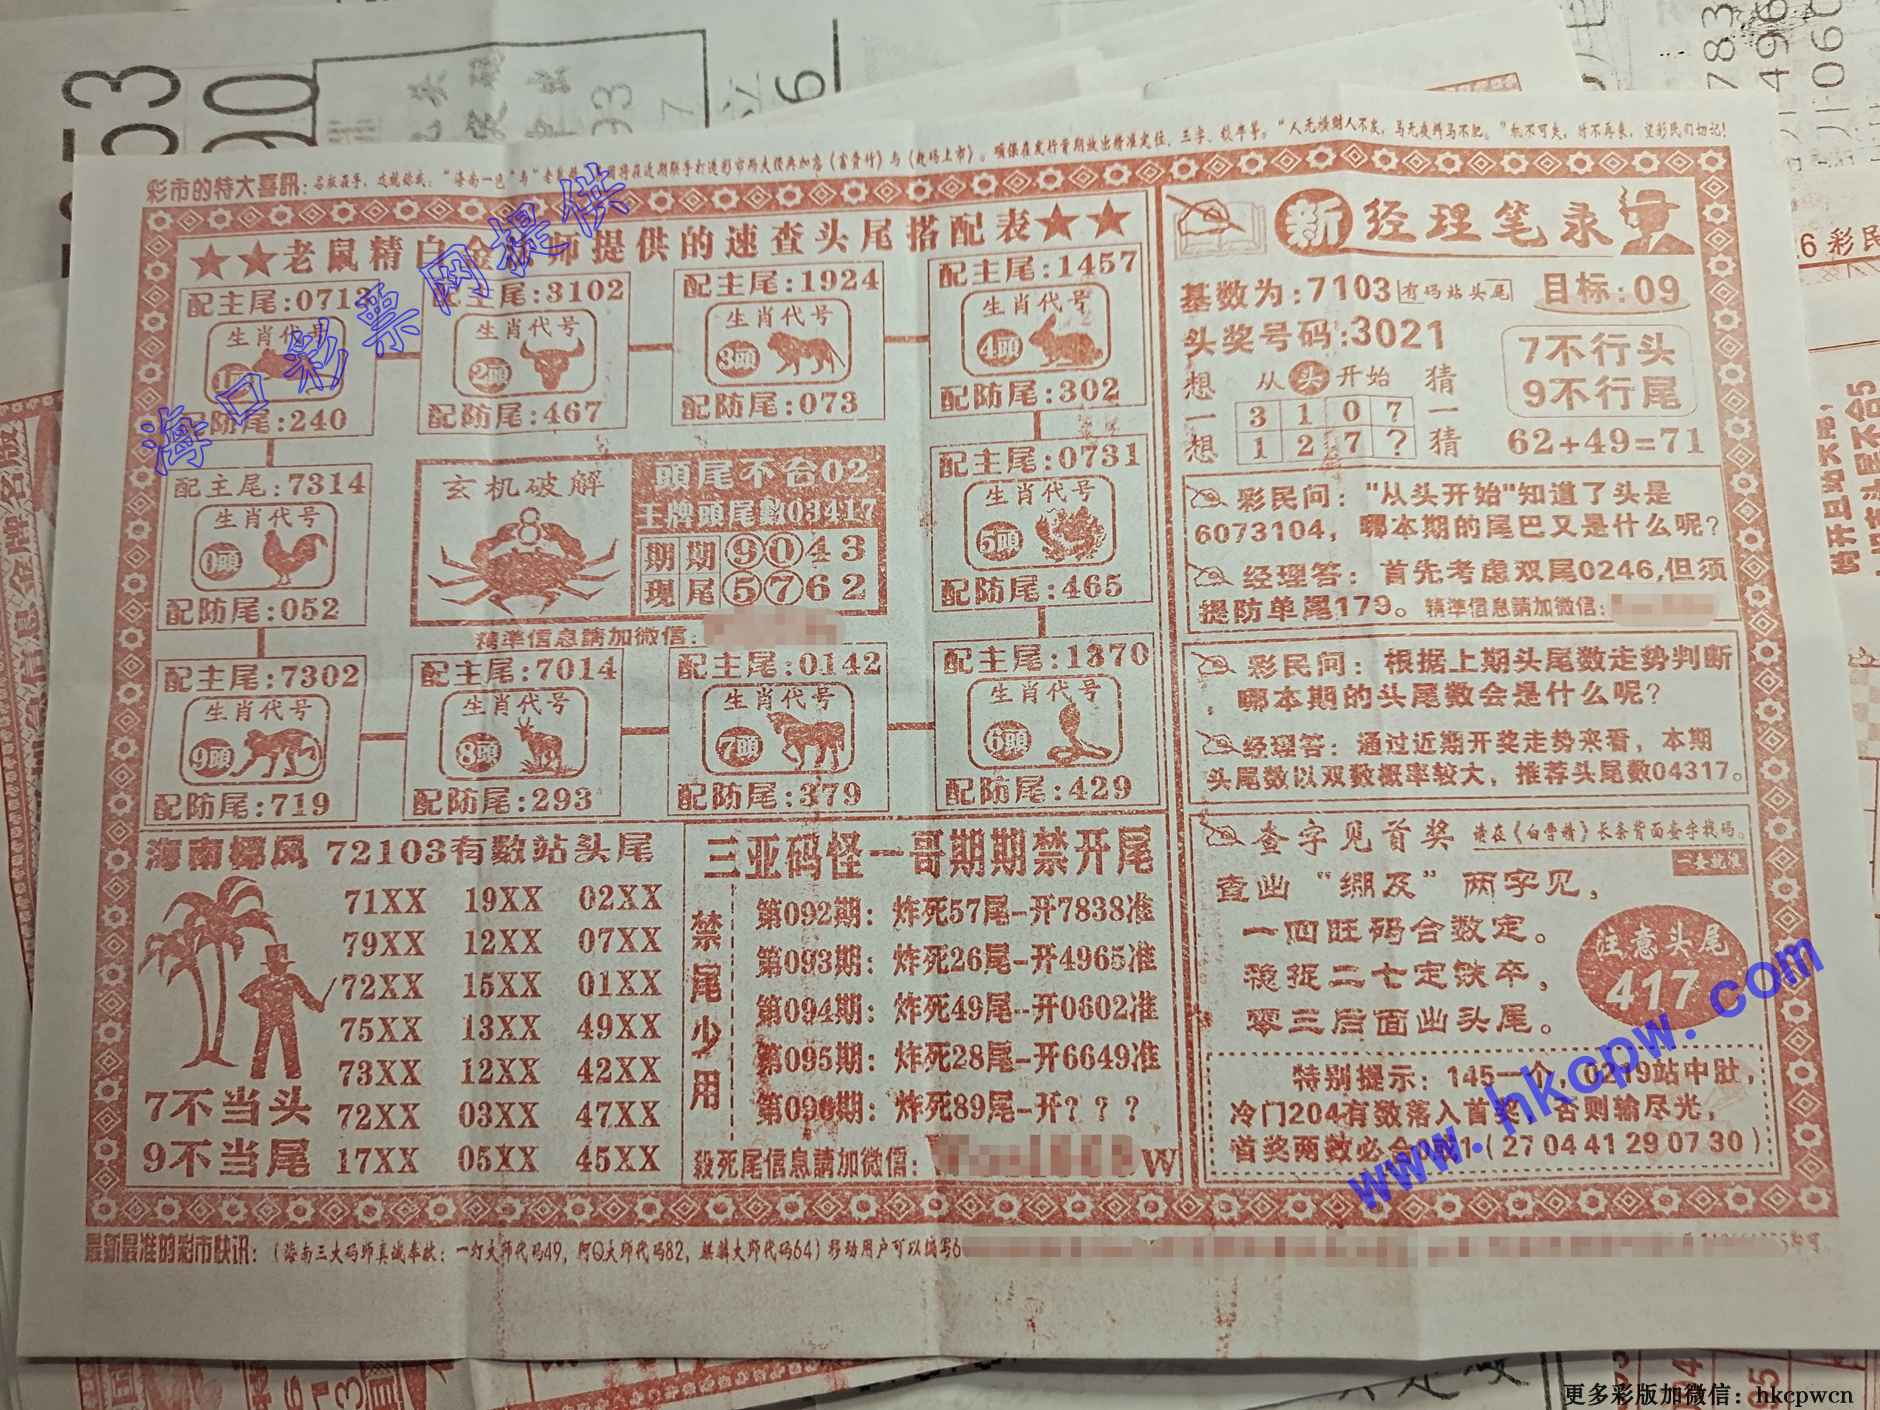 彩市的特大喜訊:
"人无横财人不发，马无夜料马不肥。"机不可失，时不再来，望彩民们切记!
★★老鼠精白金 师提供的速查头尾搭配表★★
配主尾:0713
生肖代号
1
配防尾:240
配主尾:3102
生肖代号
2頭
配防尾:467
配主尾:1924
生肖代号
3頭
配防尾:073
配主尾:1457
生肖代号
4頭
配防尾:302
配主尾:7314
生肖代号
0頭
配防尾:052
玄机破解
8
頭尾不合02
王牌頭尾數03417
期期⑨⓪43
现尾⑤⑦62
精準信息請加微信:
配主尾:0731
生肖代号
5頭
配防尾:465
配主尾:7302
生肖代号
9頭
配防尾:719
配主尾:7014
生肖代号
8頭
配防尾:293
配主尾:0142
生肖代号
7頭
配防尾:379
配主尾:1370
生肖代号
6頭
配防尾:429
海南椰风 72103有数站头尾
71XX 19XX 02XX
79XX 12XX 07XX
72XX 15XX 01XX
75XX 13XX 49XX
73XX 12XX 42XX
72XX 03XX 47XX
17XX 05XX 45XX
7不当头
9不当尾
三亚码怪一哥期期禁开尾
禁尾少用
第092期: 炸死57尾-开7838准
第093期: 炸死26尾-开4965准
第094期: 炸死49尾--开0602准
第095期: 炸死28尾-开6649准
第096期: 炸死89尾-开? ? ?
殺死尾信息請加微信: W
新经理笔录
基数为:7103 有码站头尾 目标:09
头奖号码:3021
想一想
从头开始
3 1 0 7
1 2 7 ?
猜一猜
7不行头
9不行尾
62+49=71
彩民问: "从头开始"知道了头是
6073104，哪本期的尾巴又是什么呢?
经理答: 首先考虑双尾0246,但须
提防单尾179。精準信息請加微信:
彩民问: 根据上期头尾数走势判断
，哪本期的头尾数会是什么呢?
经理答: 通过近期开奖走势来看，本期
头尾数以双数概率较大，推荐头尾数04317。
查字见首奖 请在《白骨精》长条背面查字找码。
查出"绷及"两字见，
一四旺码合数定。
稳捉二七定铁卒，
零三后面出头尾。
注意头尾
417
特别提示: 145一个，0219站中肚，
冷门204有数落入首奖，否则输尽光，
首奖两数必合 1 (27 04 41 29 07 30)
最新最准的彩市快讯: (海南三大码师真诚奉献: 一灯大师代码49, 阿Q大师代码82, 麒麟大师代码64) 移动用户可以编写6
海口彩票网提供
www.hkcpw.com
更多彩版加微信: hkcpwcn